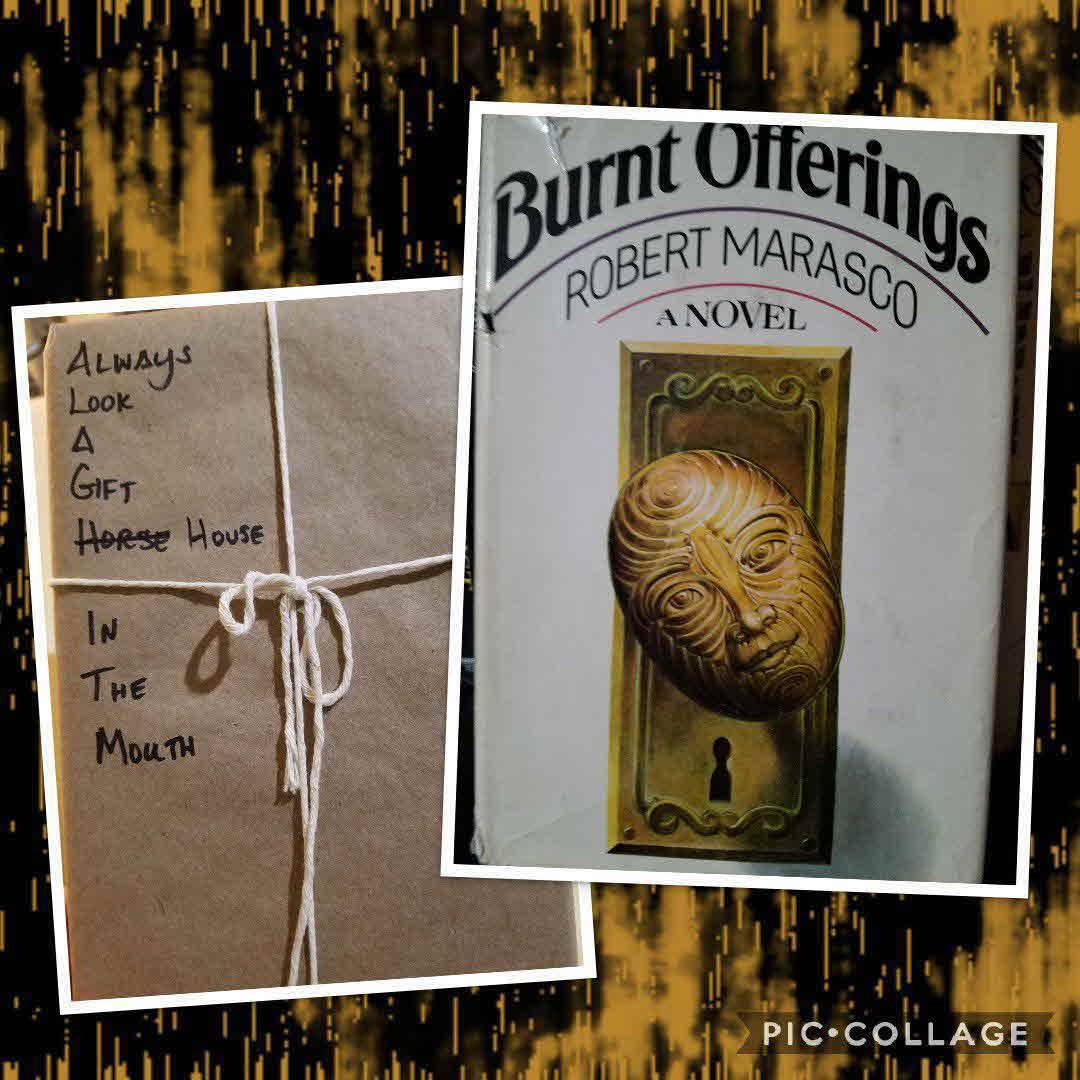 Always
Look
A
Gift
Horse House
In
The
Mouth
Burnt Offerings
ROBERT MARASCO
A NOVEL
PIC•COLLAGE